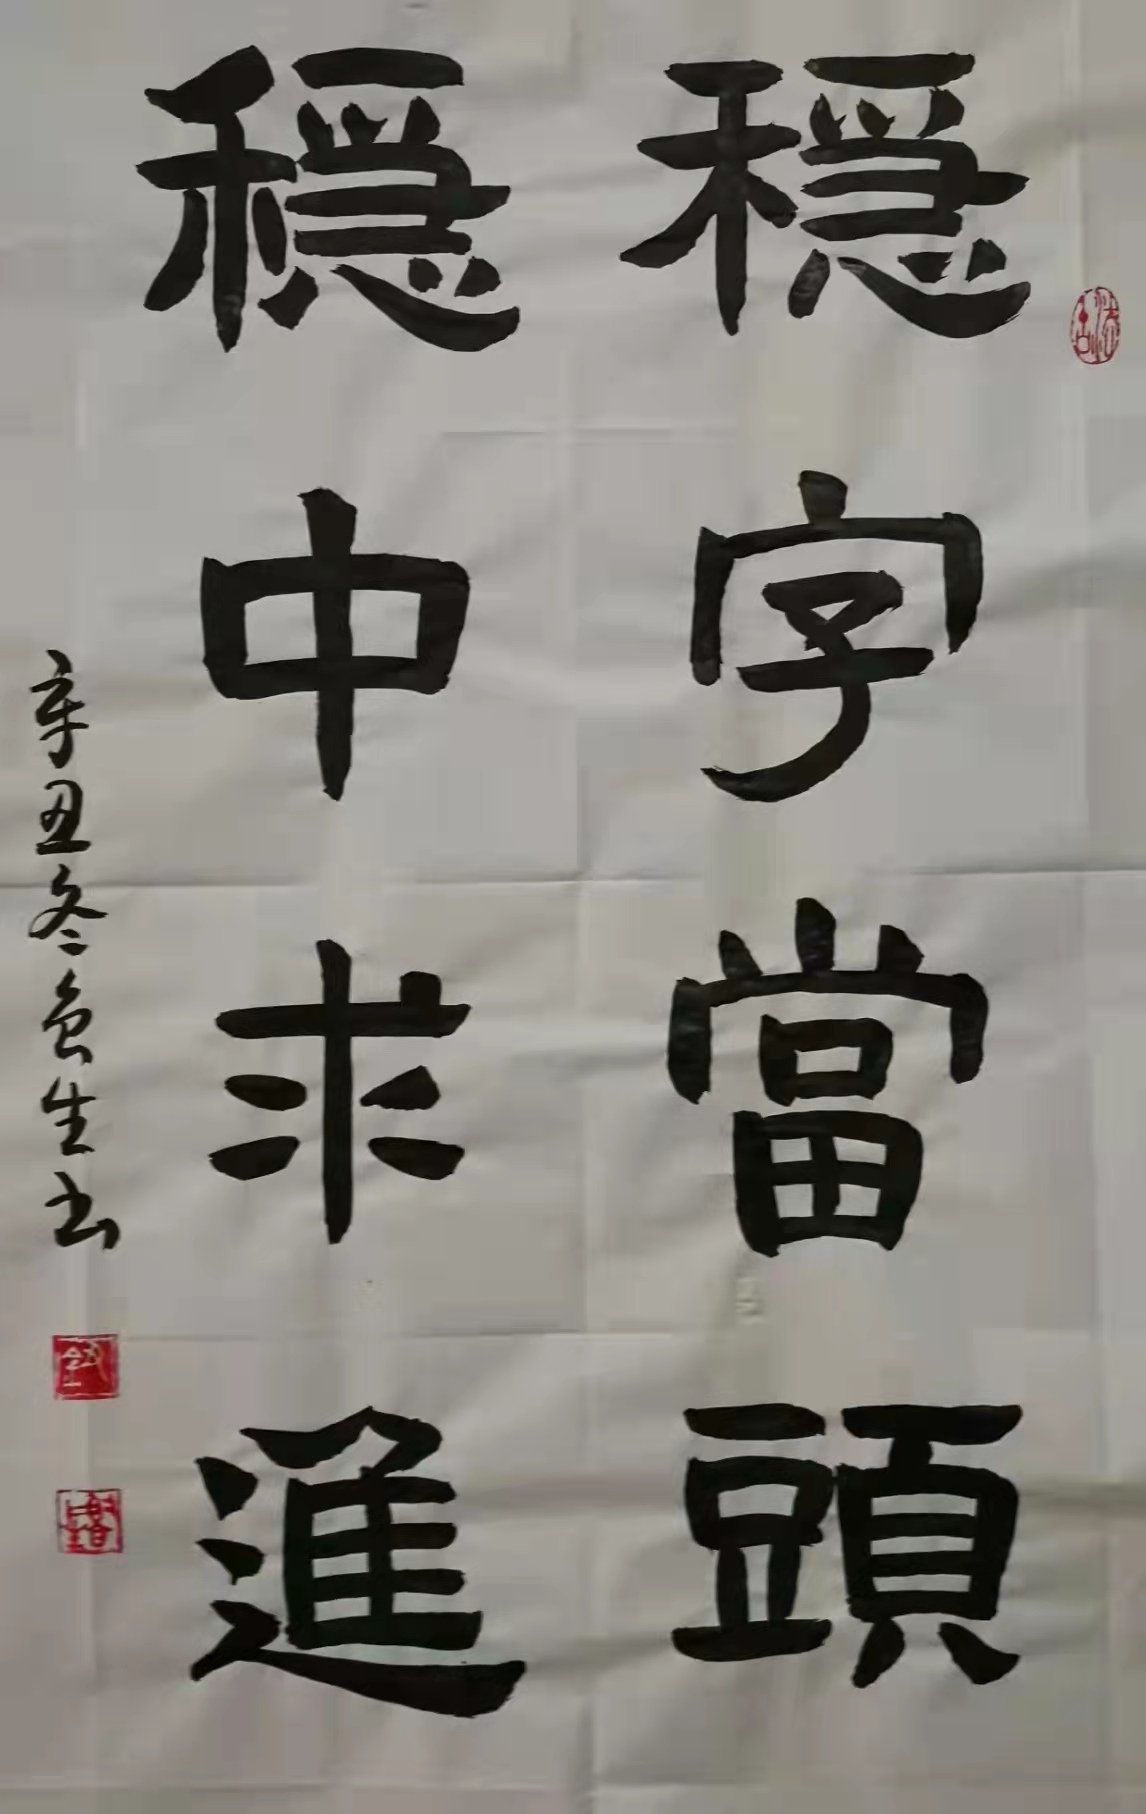 穩字當頭
穩中求進
辛丑冬魚生书